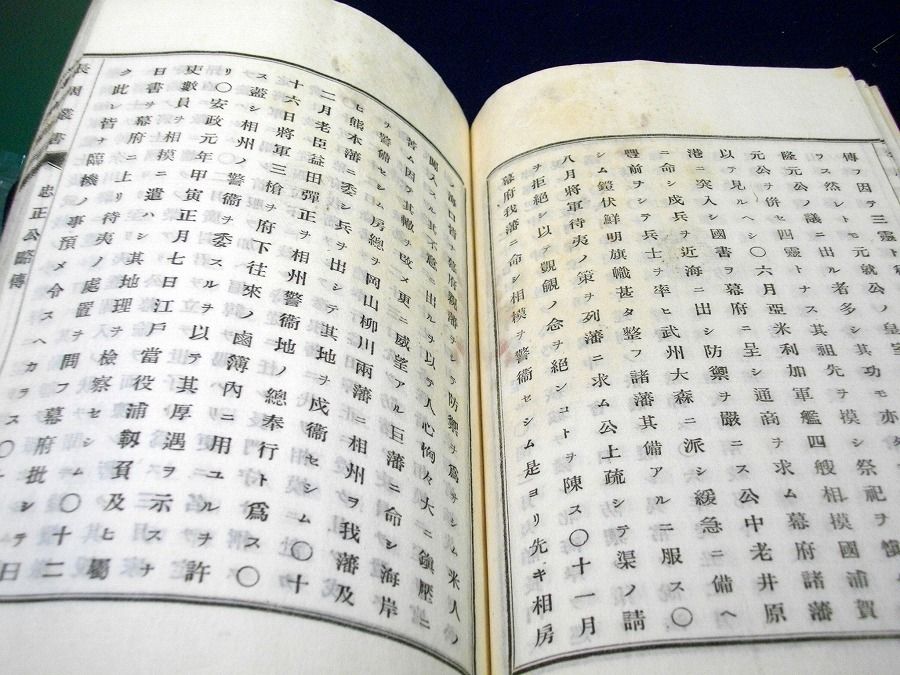 傳フ因テ三靈ト
ヲ然レトモ元就公ノ皇室ニ功モ亦
隆元公ノ議ニ出ル者多シ其祖先ヲ模シ祭祀ヲ
元公ヲ併セ四靈トナス
以テ見ルヘシ〇六月亞米利加軍艦四艘相模國浦賀
港ニ突入シ國書ヲ幕府ニ呈シ通商ヲ求ム幕府諸藩
ニ命シ戍兵ヲ近海ニ出シ防禦ヲ嚴ニス公中老井原
豐前ヲシテ兵士ヲ率ヒ武州大森ニ派シ緩急ニ備ヘ
シム鎧伏鮮明旗幟甚タ整フ諸藩其備アルニ服ス〇
八月將軍待夷ノ策ヲ列藩ニ求ム公上疏シテ渠ノ請
ヲ拒絕シ以テ覬覦ノ念ヲ絕ンコトヲ陳ス〇十一月
幕府我藩ニ命シ相模ヲ警衞セシム是ヨリ先キ相房
ノ海口皆ナ幕府親藩ヲシテ防禦ヲ爲サシム米人ノ
闖入スル其不意ニ出ルヲ以テ人心恟々大ニ鎭壓ニ
苦ム因テ其轍ヲ改メ更ニ威望アル巨藩ニ命シ海岸
ヲ警備セシム房總ヲ岡山柳川兩藩ニ相州ヲ我藩及
ヒ熊本藩ニ委シ兵ヲ出シテ其地ヲ戍衞セシム〇十
二月老臣益田彈正ヲ相州警衞地ノ總奉行ト爲ス〇
十六日將軍三槍ヲ府下往來ノ鹵簿內ニ用ユルヲ許
ス蓋シ相州ノ警衞ヲ委スルヲ以テ其厚遇ヲ示スナ
リ〇安政元年甲寅正月七日江戶當役浦靱負及ヒ屬
吏數員ヲ相模ニ遣ハシ其地理ヲ檢察セシム〇十二
日書ヲ幕府ニ上リ待夷ノ處置ヲ問フ幕府批シテ曰
ク此レ皆ナ臨機ノ事預メ令スヘカラス〇
長周叢書
忠正公略傳